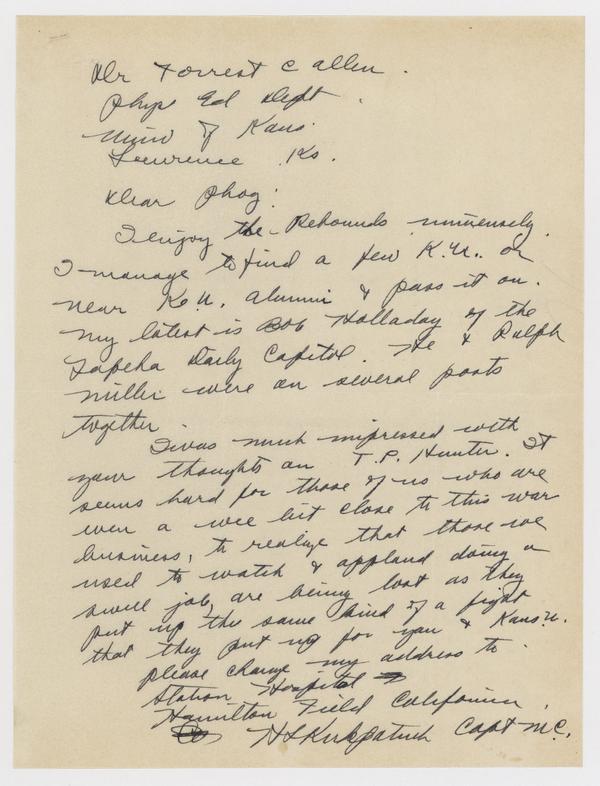 Dr Forrest C Allen.
Phys Ed Dept.
Univ of Kans.
Lawrence Ks.
Dear Phog:
I enjoy the Rebounds immensely.
I manage to find a few K.U. or
near K.U. alumni & pass it on.
my latest is Bob Holladay of the
Topeka Daily Capitol. He & Ralph
Miller were on several posts
together.
I was much impressed with
your thoughts on T.P. Hunter. It
seems hard for those of us who are
even a wee bit close to this war
business, to realize that those we
used to watch & applaud doing a
swell job, are being lost as they
put up the same kind of a fight
that they put up for you & Kans U.
please change my address to
Station Hospital
Hamilton Field California.
HL Kirkpatrick Capt M.C.